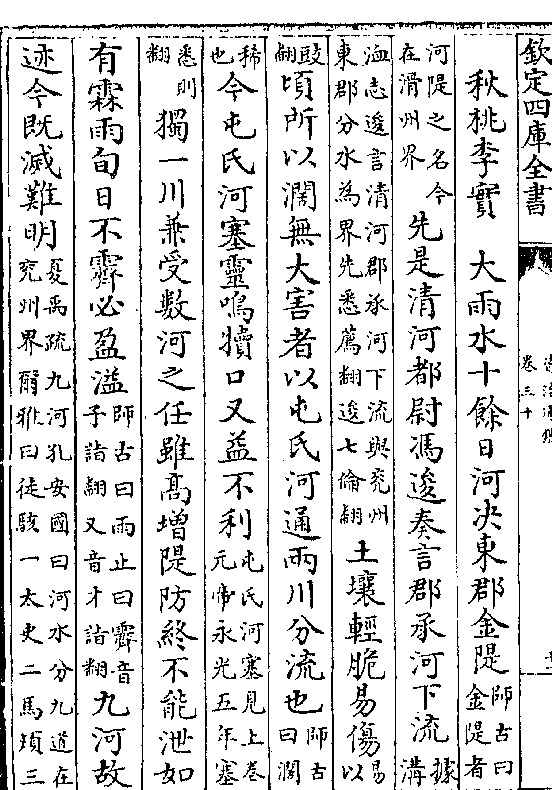 欽定四庫全書
卷三十
秋桃李實　大雨水十餘日河决東郡金隄師古曰金隄者
河隄之名今在滑州界先是清河都尉馮逡奏言郡承河下流據溝
洫志逡言清河郡承河下流與兖州東郡分水為界先悉薦翻逡七倫翻土壤輕脆易傷易以
豉翻頃所以濶無大害者以屯氏河通兩川分流也師古曰濶
稀也今屯氏河塞靈鳴犢口又益不利屯氏河塞見上卷元帝永光五年塞
悉則翻獨一川兼受數河之任雖髙增隄防終不能泄如
有霖雨旬日不霽必盈溢師古曰雨止曰霽音子詣翻又音才詣翻九河故
迹今既滅難明夏禹疏九河孔安國曰河水分九道在兖州界爾雅曰徒駭一太史二馬頰三